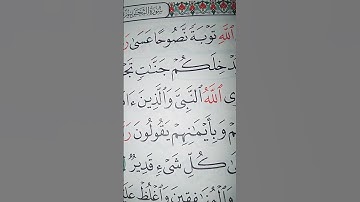 سُورَةُ التَّحْرِيمِ
ٱللَّهِ تَوۡبَةٗ نَّصُوحًا عَسَىٰ رَ
دۡخِلَكُمۡ جَنَّٰتٖ تَجۡ
ي ٱللَّهُ ٱلنَّبِيَّ وَٱلَّذِينَ ءَا
مۡ وَبِأَيۡمَٰنِهِمۡ يَقُولُونَ رَ
ىٰ كُلِّ شَيۡءٖ قَدِيرٞ
وَٱلۡمُنَٰفِقِينَ وَٱغۡلُظۡ عَلَ